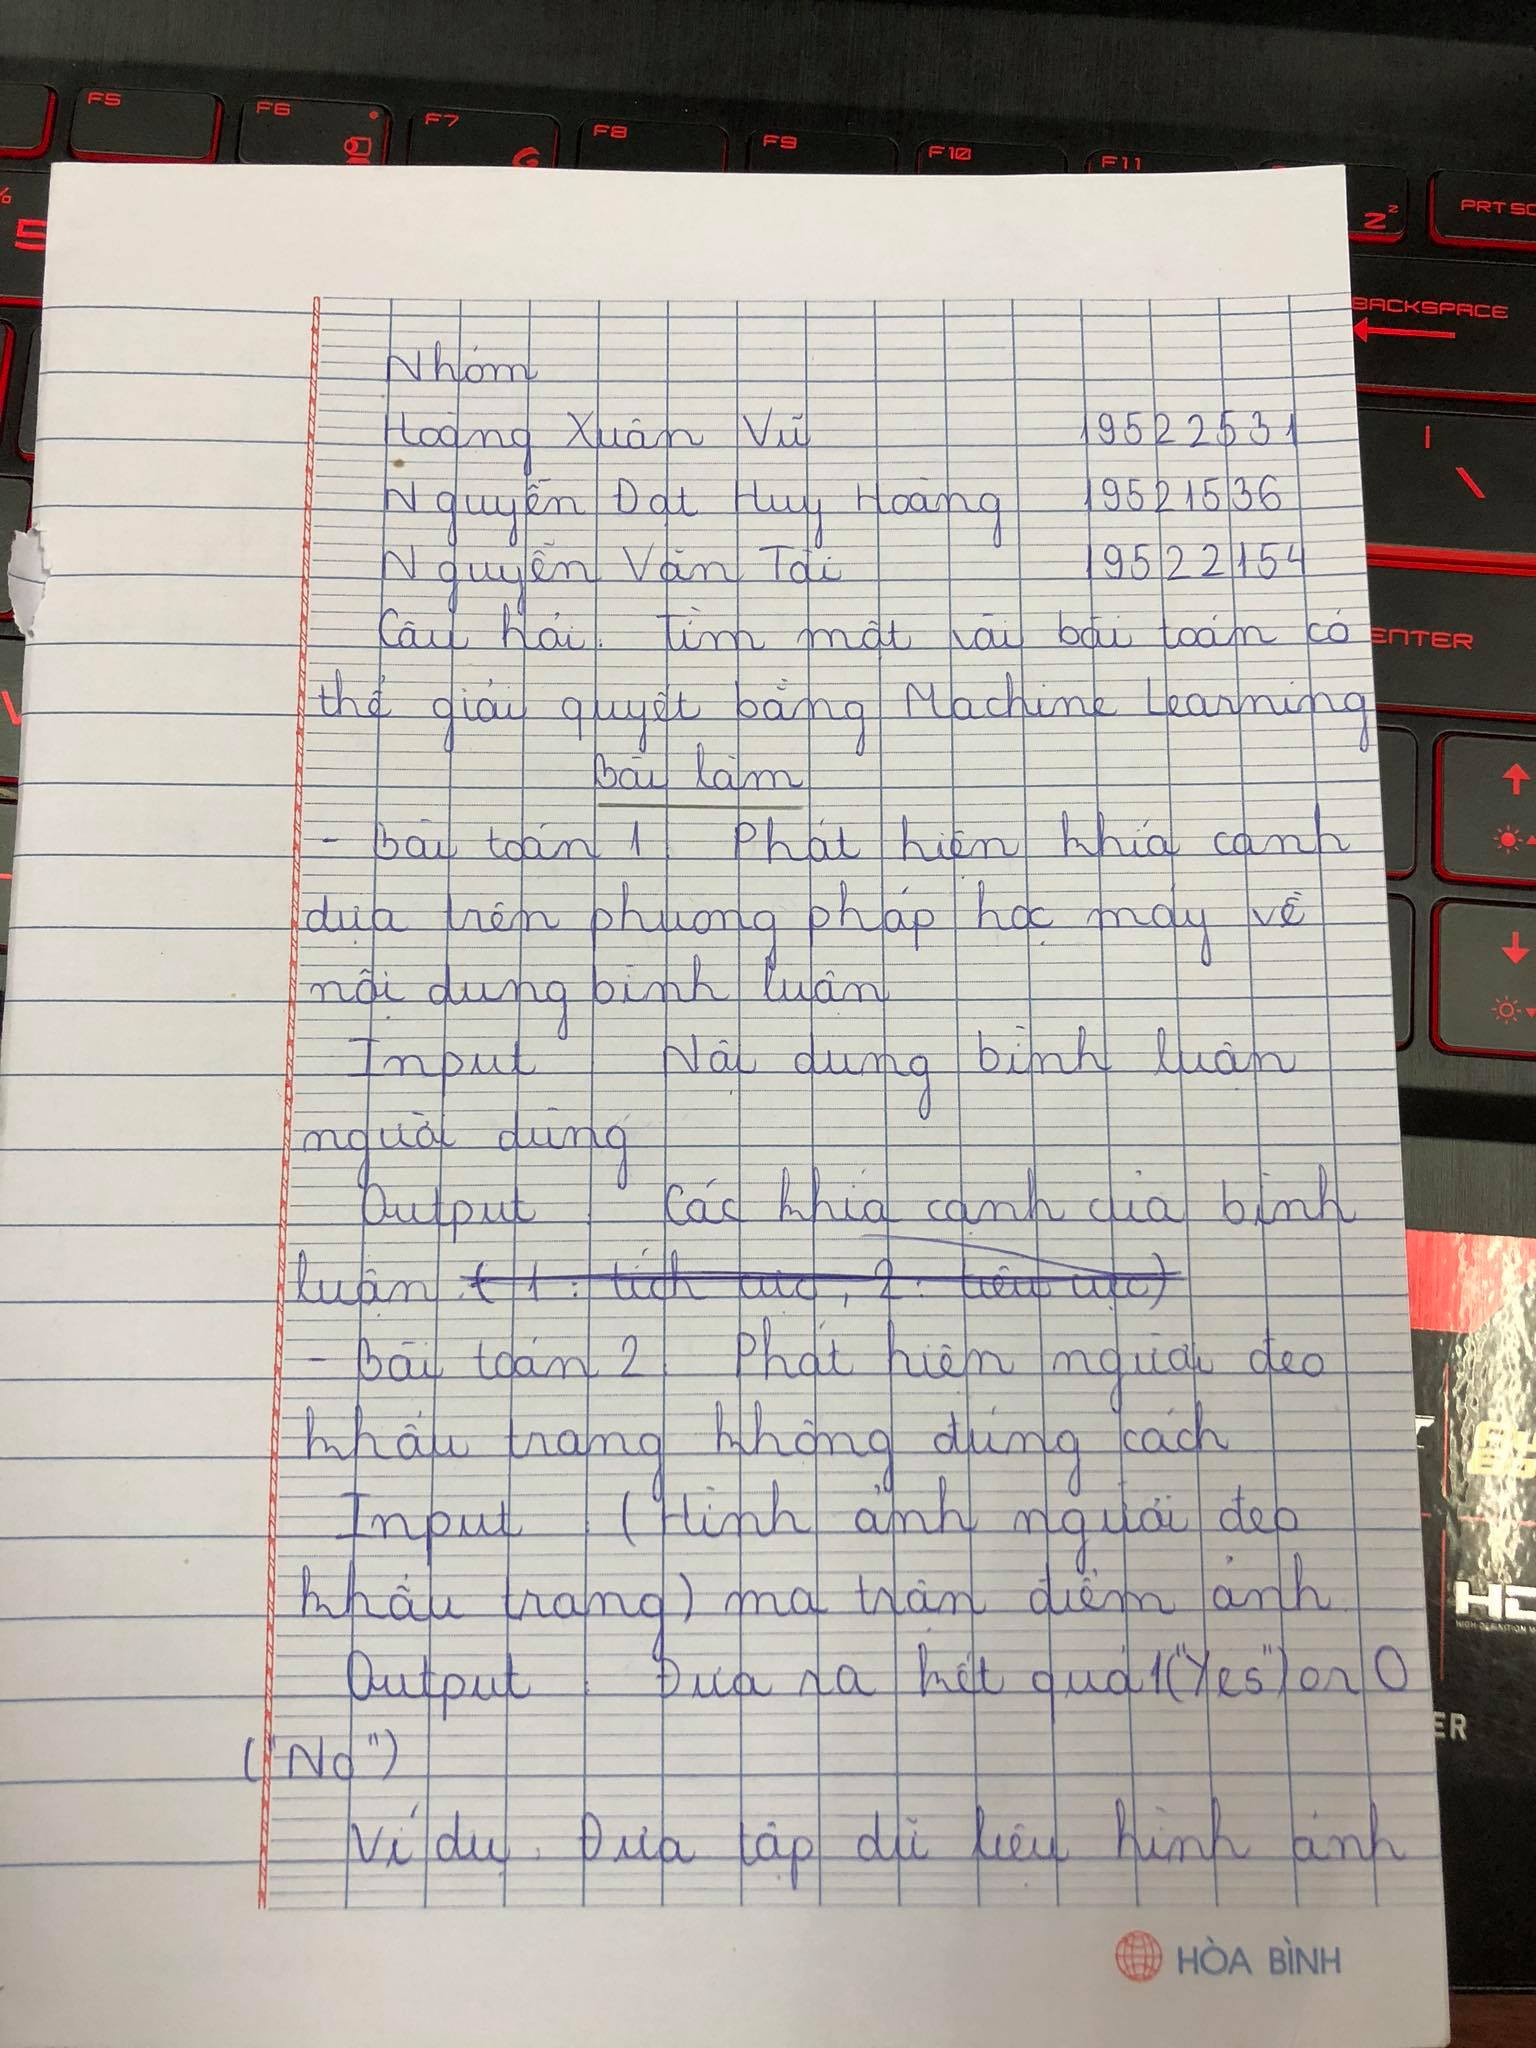 F5
F6
F7
F8
F9
F10
F11
Z
PRT SC
%
5
BACKSPACE
ENTER
Nhóm
Hoàng Xuân Vũ 19522531
Nguyễn Đạt Huy Hoàng 19521536
Nguyễn Văn Tài 19522154
Câu hỏi: Tìm một vài bài toán có
thể giải quyết bằng Machine Learning
Bài làm
- Bài toán 1: Phát hiện khía cạnh
dựa trên phương pháp học máy về
nội dung bình luận
Input: Nội dung bình luận
người dùng
Output: Các khía cạnh của bình
luận (1: tích cực, 2: tiêu cực)
- Bài toán 2: Phát hiện người đeo
khẩu trang không đúng cách
Input: (Hình ảnh người đeo
khẩu trang) ma trận điểm ảnh
Output: Đưa ra kết quả 1("Yes") or 0
("No")
Ví dụ: Đưa tập dữ liệu hình ảnh
HÒA BÌNH
ER